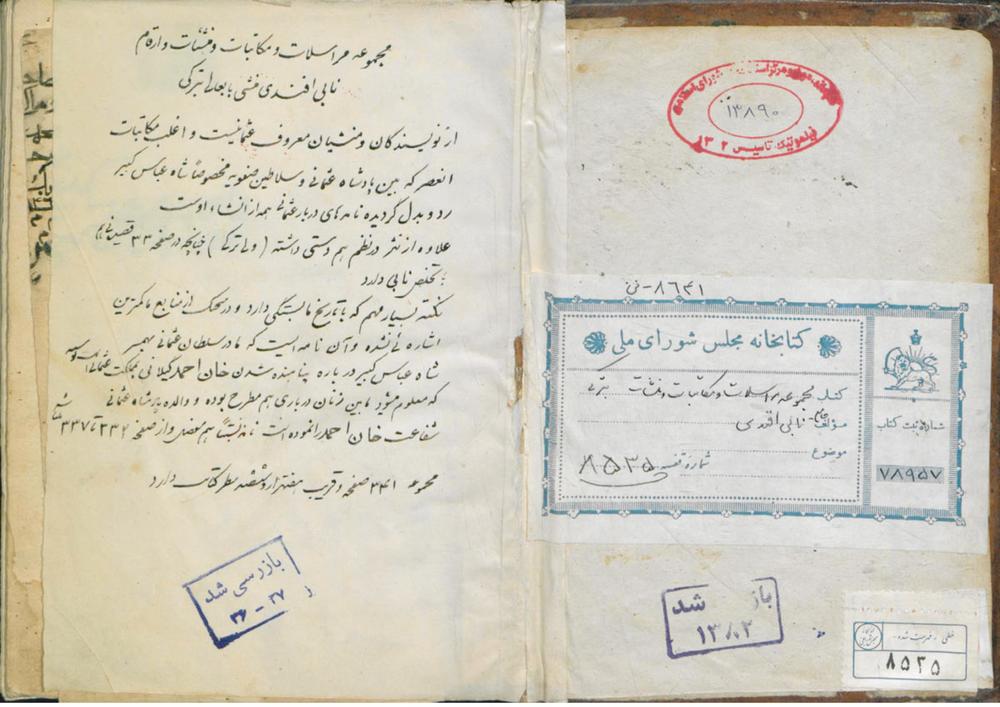 مجموعه مراسلات و مکاتبات و منشئات و ارقام
نابی افندی منشی باب عالی ترکی
از نویسندگان و منشیان معروف عثمانیست و اغلب مکاتبات
انعصر که بین پادشاه عثمانی و سلاطین صفویه مخصوصاً شاه عباس کبیر
رد و بدل گردیده نامه های دربار عثمانی همه از انشاء اوست
علاوه از نثر در نظم هم دستی داشته ( ولی ترکی ) چنانچه در صفحه ۳۳
تخلص نابی دارد
نکته بسیار مهم که با تاریخ ما بستگی دارد و در از منابع ما کمترین
اشاره ئی نشده و آن نامه است که مادر سلطان عثمانی بهمسر
شاه عباس کبیر در باره پناهنده شدن خان احمد گیلانی بمملکت عثمانی
که معلوم میشود بین زنان درباری هم مطرح بوده و والده پادشاه عثمانی
شفاعت خان احمد را نموده است نامه نسبتاً هم مفصل و از صفحه ۳۳۲ تا ۳۳۷
مجموعه ۳۴۱ صفحه و قریب هفتهزار و ششصد سطر کتابت دارد
بازرسی شد
۳۶ - ۳۷
شورای اسلامی
۱۳۸۹۰
تاسیس ۱۳۰۲
۸۶۴۱ - ف
کتابخانه مجلس شورای ملی
کتاب مجموعه مراسلات و مکاتبات و منشئات ترکی
مؤلف نابی افندی
موضوع
شماره قفسه ۸۵۳۵
شماره ثبت کتاب
۷۸۹۵۷
باز شد
۱۳۸۲
خطی - فهرست شده -
۸۵۳۵